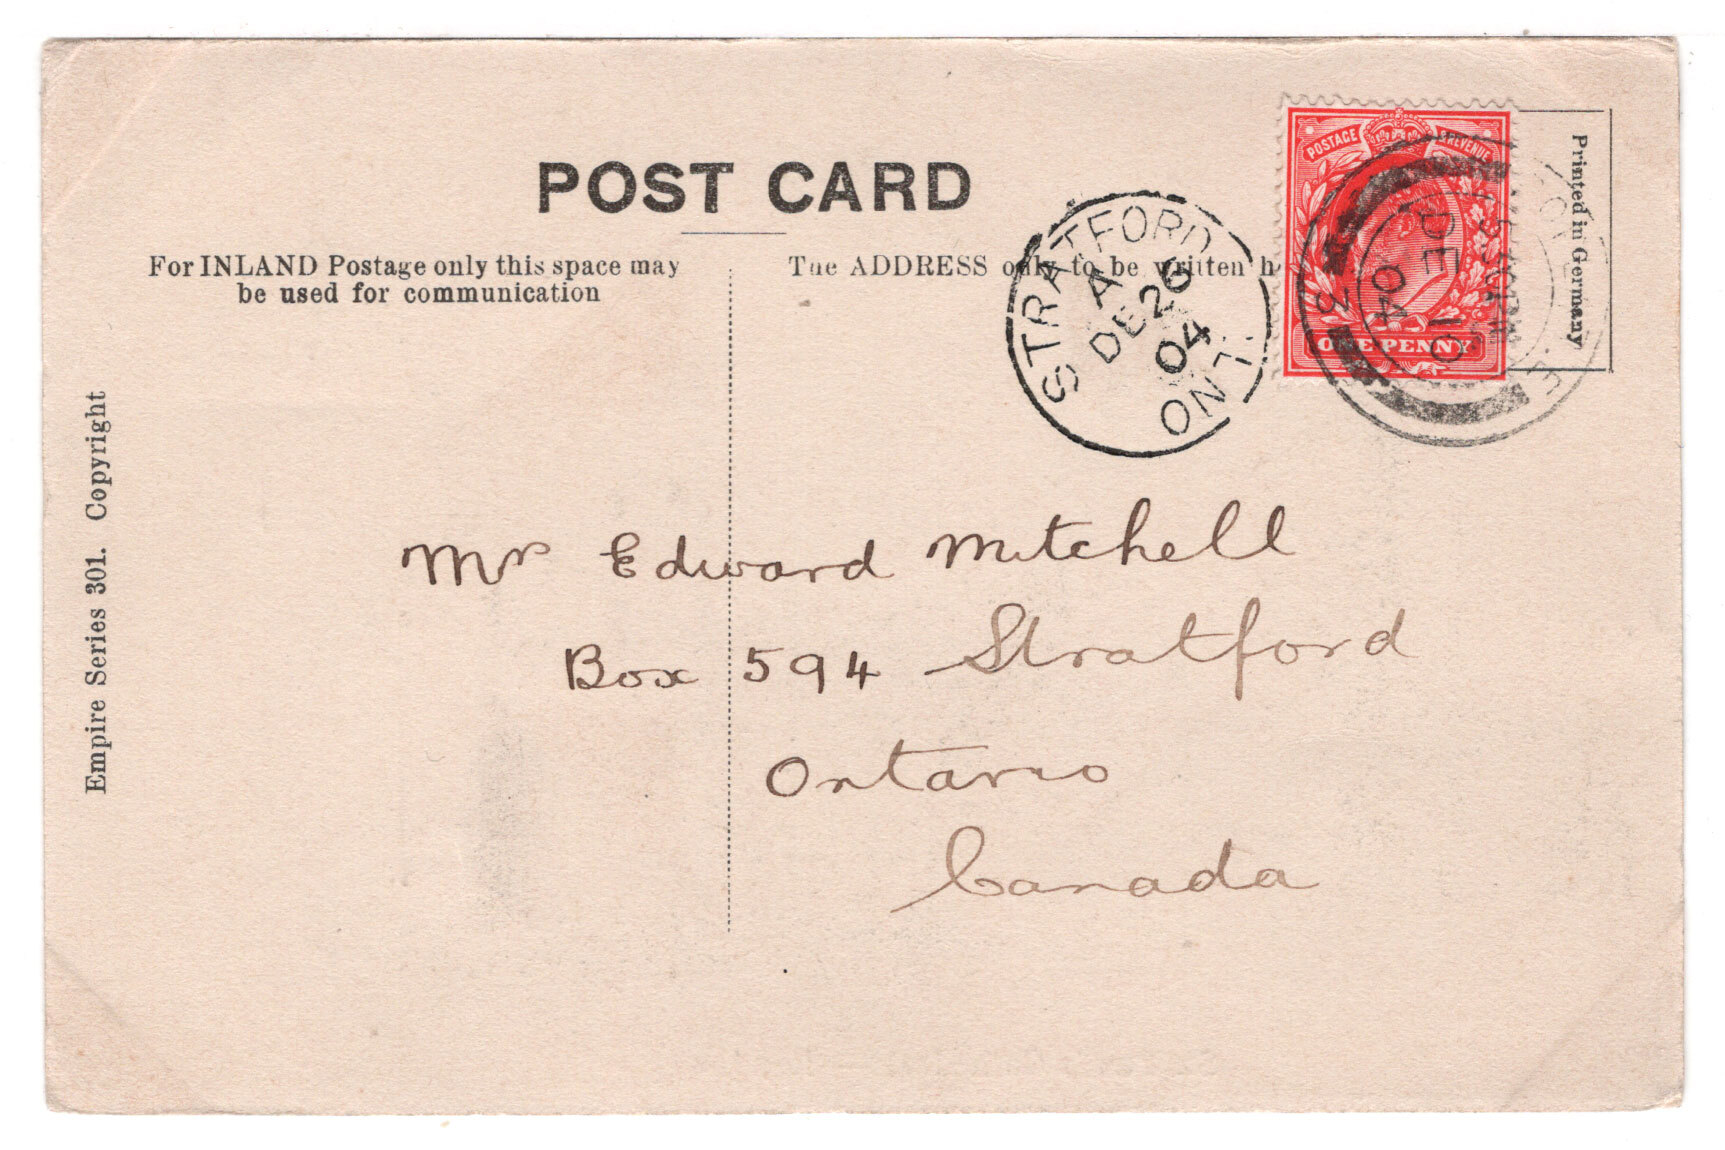 POST CARD
For INLAND Postage only this space may
be used for communication
The ADDRESS only to be written h
Printed in Germany
POSTAGE & REVENUE
ONE PENNY
STRATFORD
A
DE 26
04
ONT.
DE 10
04
3
Empire Series 301. Copyright
Mr Edward Mitchell
Box 594 Stratford
Ontario
Canada